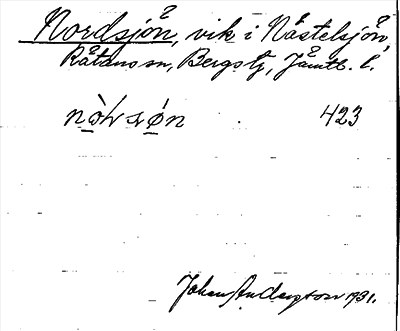 Nordsjön, vik i Nästelsjön,
Rätans sn, Bergs tg, Jämtl. l.
423
Johan Anderzson 1931.